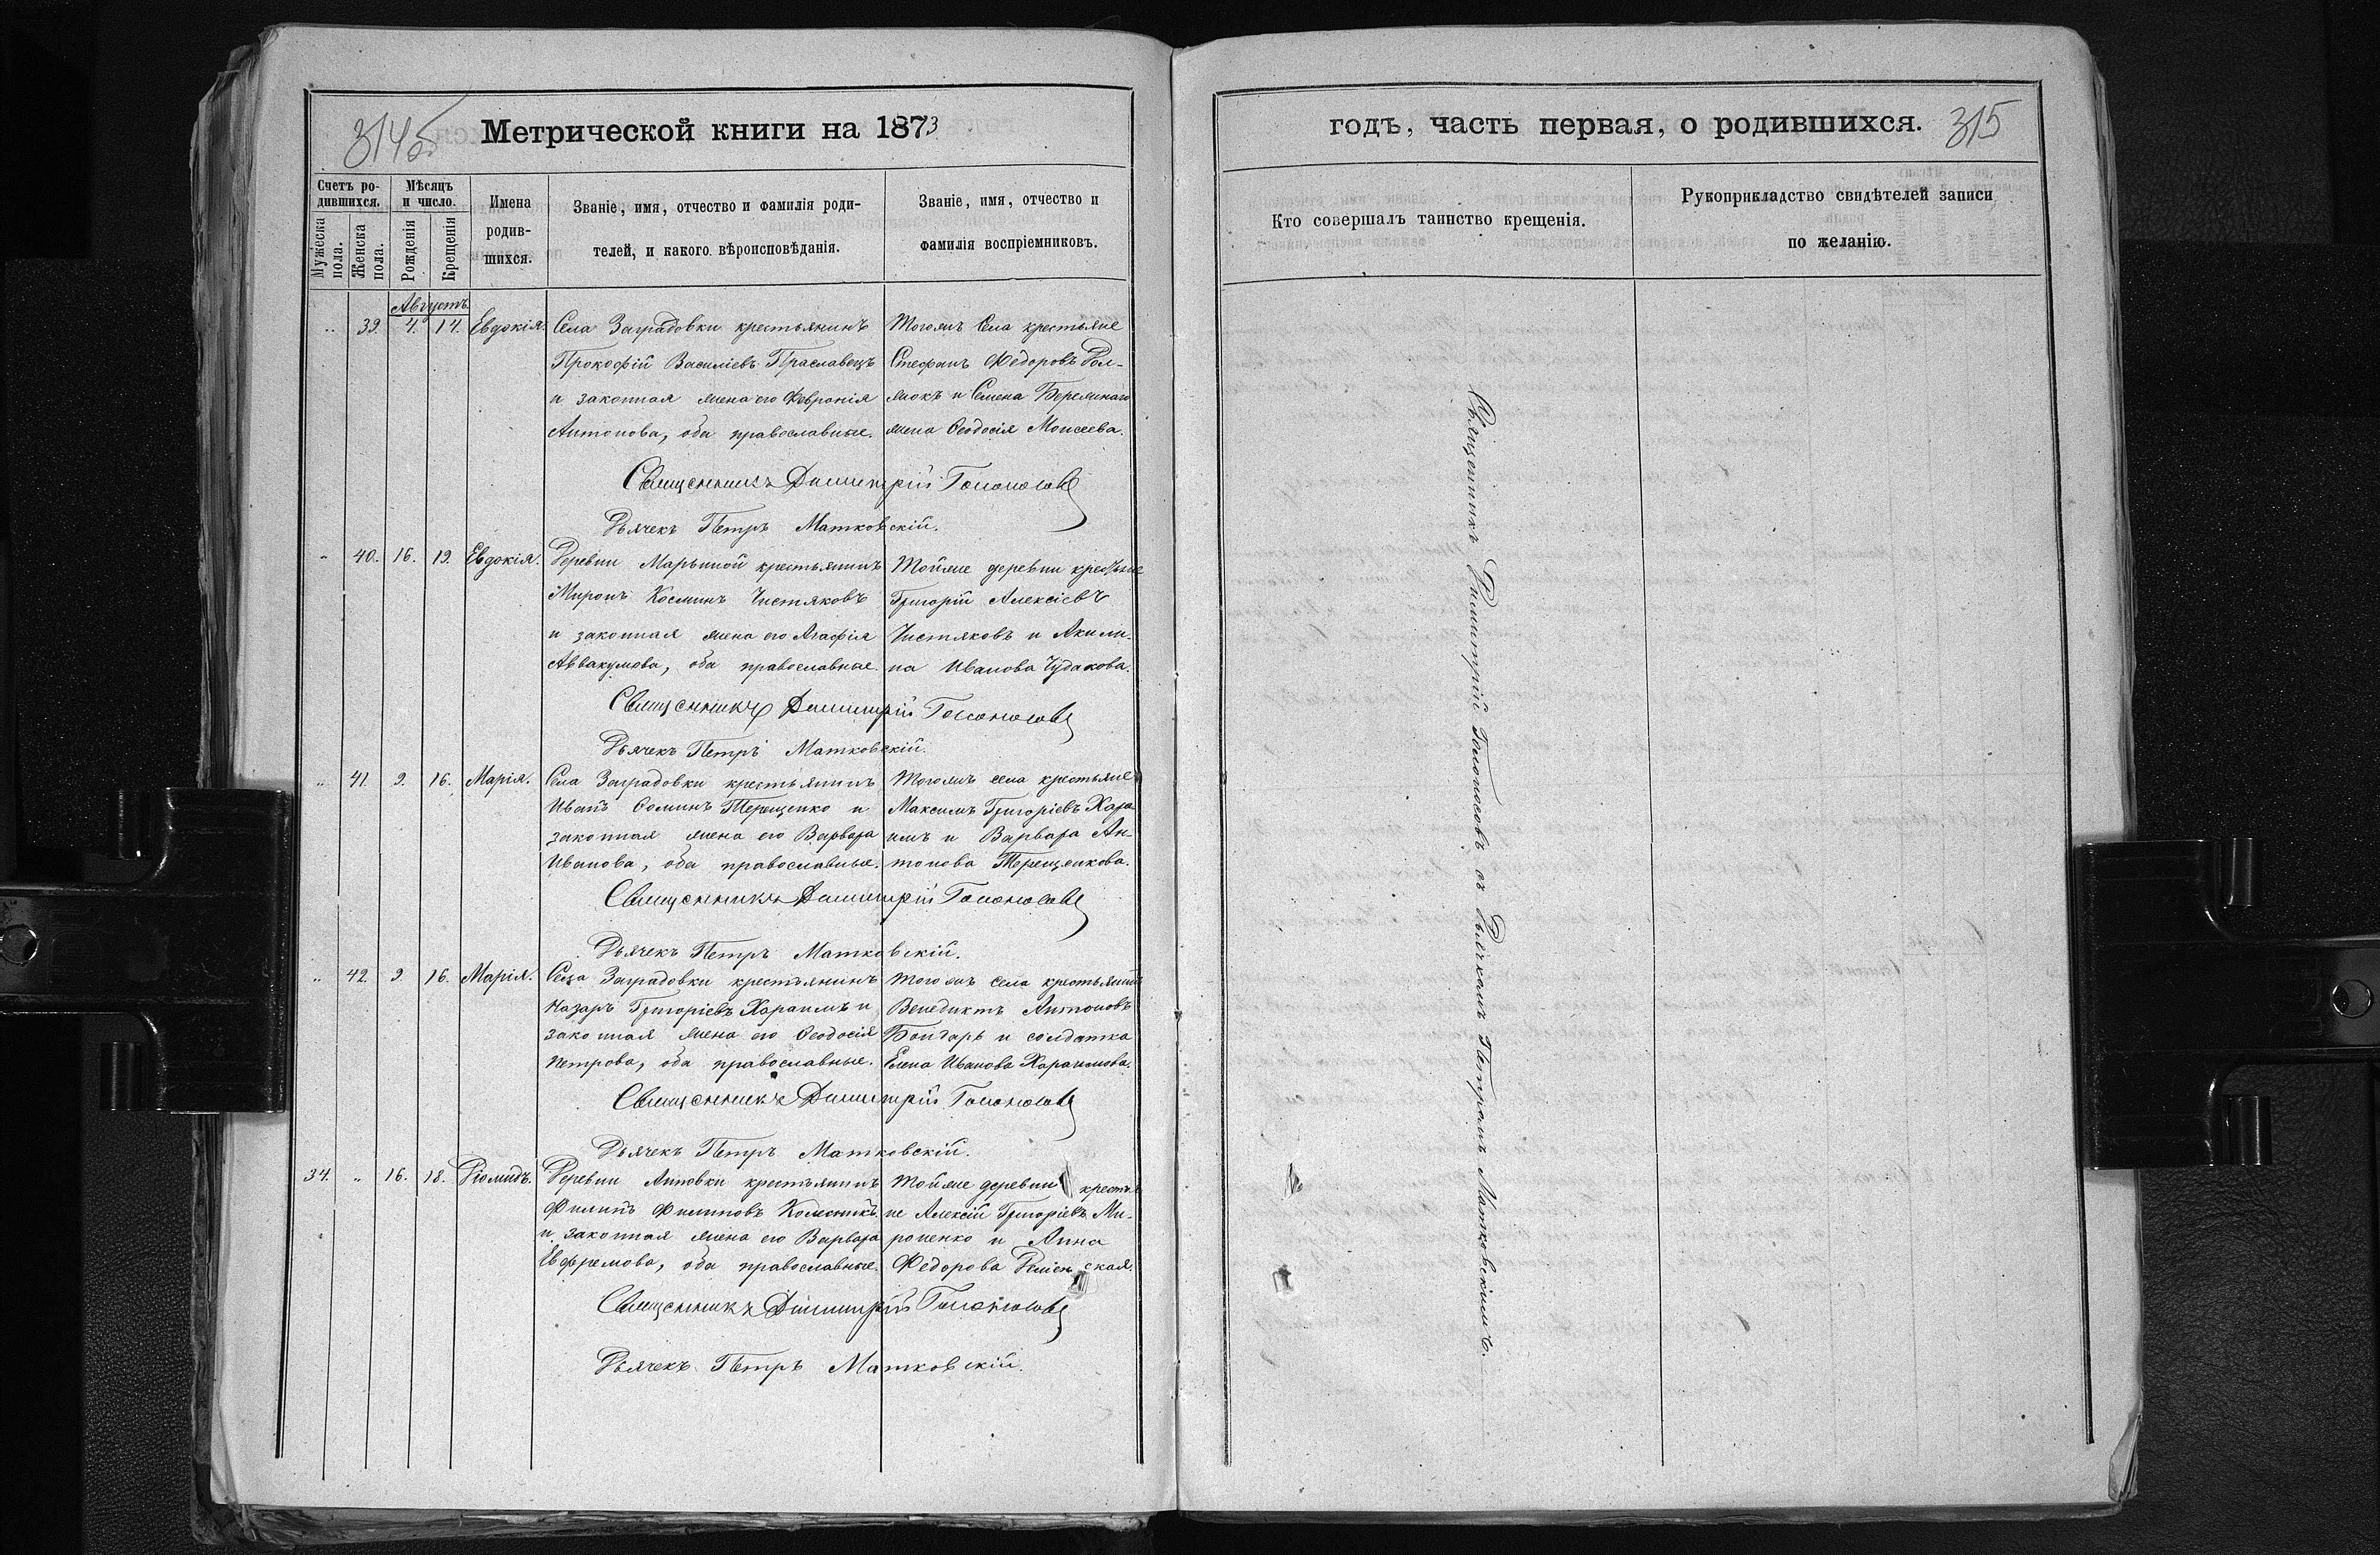 314об
Метрической книги на 1873
Счетъ ро-
дившихся.
Мужеска
пола.
Женска
пола.
Мѣсяцъ
и число.
Рожденія
Крещенія
Имена
родив-
шихся.
Званіе, имя, отчество и фамилія роди-
телей, и какого вѣроисповѣданія.
Званіе, имя, отчество и
фамилія воспріемниковъ.
Августъ
„ 39. 4. 14. Евдокія. Села Заградовки крестьянинъ
Прокофій Василіевъ
и законная жена его Февронія
Антонова, оба православные.
Тогожъ Села крестьяне
Стефанъ Федоровъ
и Семена
жена Ѳеодосія Моисеева.
Священникъ Димитрій Голоносовъ
Дьячекъ Петръ Матковскій.
„ 40. 16. 19. Евдокія. Деревни Марьиной крестьянинъ
Миронъ Косминъ Чистяковъ
и законная жена его Агафія
Аввакумова, оба православные.
Тойже деревни крестьяне
Григорій Алексіевъ
Чистяковъ и Акили-
на Иванова Чудакова.
Священникъ Димитрій Голоносовъ
Дьячекъ Петръ Матковскій.
„ 41. 9. 16. Марія. Села Заградовки крестьянинъ
Иванъ Ѳоминъ Терещенко и
законная жена его Варвара
Иванова, оба православные.
Тогожъ села крестьяне
Максимъ Григоріевъ Хара-
имъ и Варвара Ан-
тонова Терещенкова.
Священникъ Димитрій Голоносовъ
Дьячекъ Петръ Матковскій.
„ 42. 9. 16. Марія. Села Заградовки крестьянинъ
Назаръ Григоріевъ Хараимъ и
законная жена его Ѳеодосія
Петрова, оба православные.
Тогожъ села крестьянинъ
Венедиктъ Антоновъ
Бондарь и солдатка
Елена Иванова Хараимова.
Священникъ Димитрій Голоносовъ
Дьячекъ Петръ Матковскій.
34. „ 16. 18. Діомидъ. Деревни Анновки крестьянинъ
Филипъ Филиповъ
и законная жена его Варвара
Евфремова, оба православные.
Тойже деревни крестья-
не Алексій Григоріевъ Ми-
роненко и Анна
Федорова
Священникъ Димитрій Голоносовъ
Дьячекъ Петръ Матковскій.
годъ, часть первая, о родившихся.
315
Кто совершалъ таинство крещенія.
Рукоприкладство свидѣтелей записи
по желанію.
Священникъ Димитрій Голоносовъ съ Дьячкомъ Петромъ Матковскимъ.